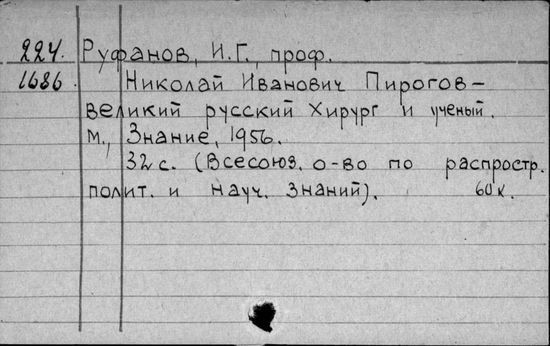 224. Руфанов, И.Г., проф.
1686. Николай Иванович Пирогов –
великий русский хирург и ученый.
М., Знание, 1956.
32 с. (Всесоюз. о-во по распростр.
полит. и науч. знаний). 60 к.